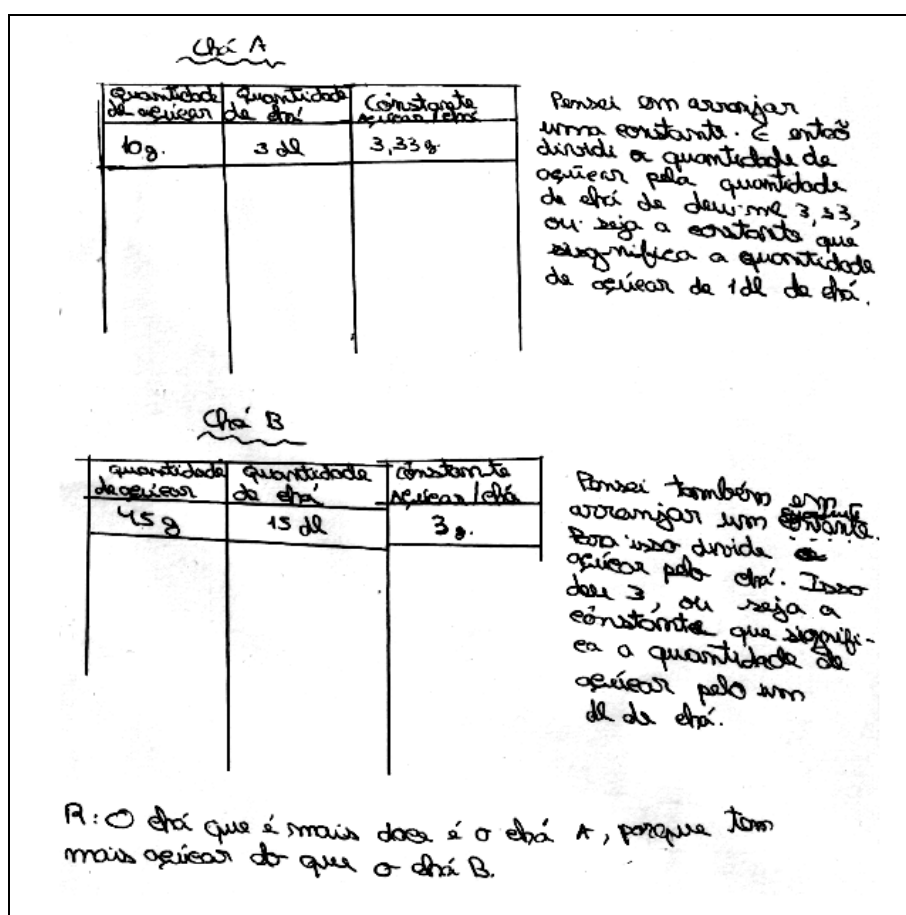 Chá A
Quantidade de açúcar
Quantidade de chá
Constante açúcar/chá
10g.
3 dl
3,33g
Pensei em arranjar
uma constante. E então
dividi a quantidade de
açúcar pela quantidade
de chá de deu-me 3,33,
ou seja a constante que
significa a quantidade
de açúcar de 1dl de chá.
Chá B
quantidade de açúcar
Quantidade de chá
constante açúcar/chá
45 g
15 dl
3g.
Pensei também em
arranjar um
Para isso divide
açúcar pelo chá. Isso
deu 3, ou seja a
constante que signifi-
ca a quantidade de
açúcar pelo um
dl de chá.
R: O chá que é mais doce é o chá A, porque tem
mais açúcar do que o chá B.